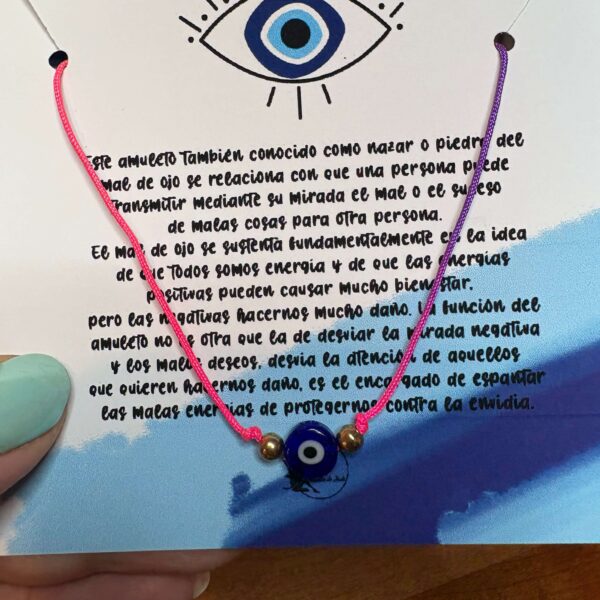 Este amuleto también conocido como nazar o piedra del
mal de ojo se relaciona con que una persona puede
transmitir mediante su mirada el mal o el suceso
de malas cosas para otra persona.
El mal de ojo se sustenta fundamentalmente en la idea
de que todos somos energía y de que las energías
positivas pueden causar mucho bienestar.
pero las negativas hacernos mucho daño. La función del
amuleto no es otra que la de desviar la mirada negativa
y los malos deseos, desvía la atención de aquellos
que quieren hacernos daño, es el encargado de espantar
las malas energías de protegernos contra la envidia.